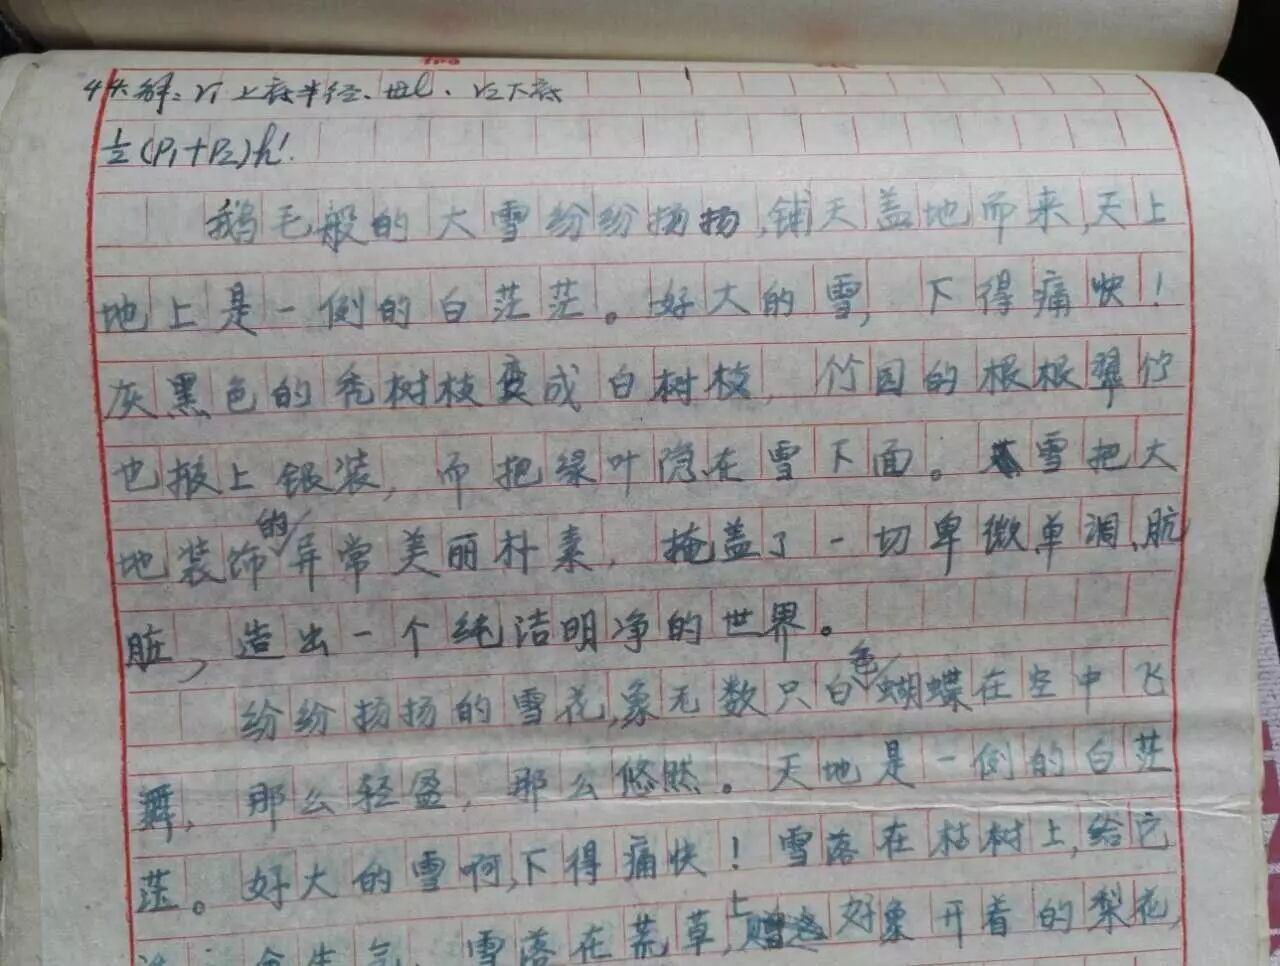 解：r₁上底半径、母l、r₂下底
½(P₁+P₂)h′.
鹅毛般的大雪纷纷扬扬,铺天盖地而来,天上
地上是一倒的白茫茫。好大的雪,下得痛快!
灰黑色的秃树枝变成白树枝,竹园的根根翠竹
也披上银装,而把绿叶隐在雪下面。雪把大
地装饰的异常美丽朴素,掩盖了一切卑微单调、肮
脏,造出一个纯洁明净的世界。
纷纷扬扬的雪花,象无数只白色蝴蝶在空中飞
舞,那么轻盈,那么悠然。天地是一倒的白茫
茫。好大的雪啊,下得痛快!雪落在枯树上,给它
雪落在荒草上,好象开着的梨花,